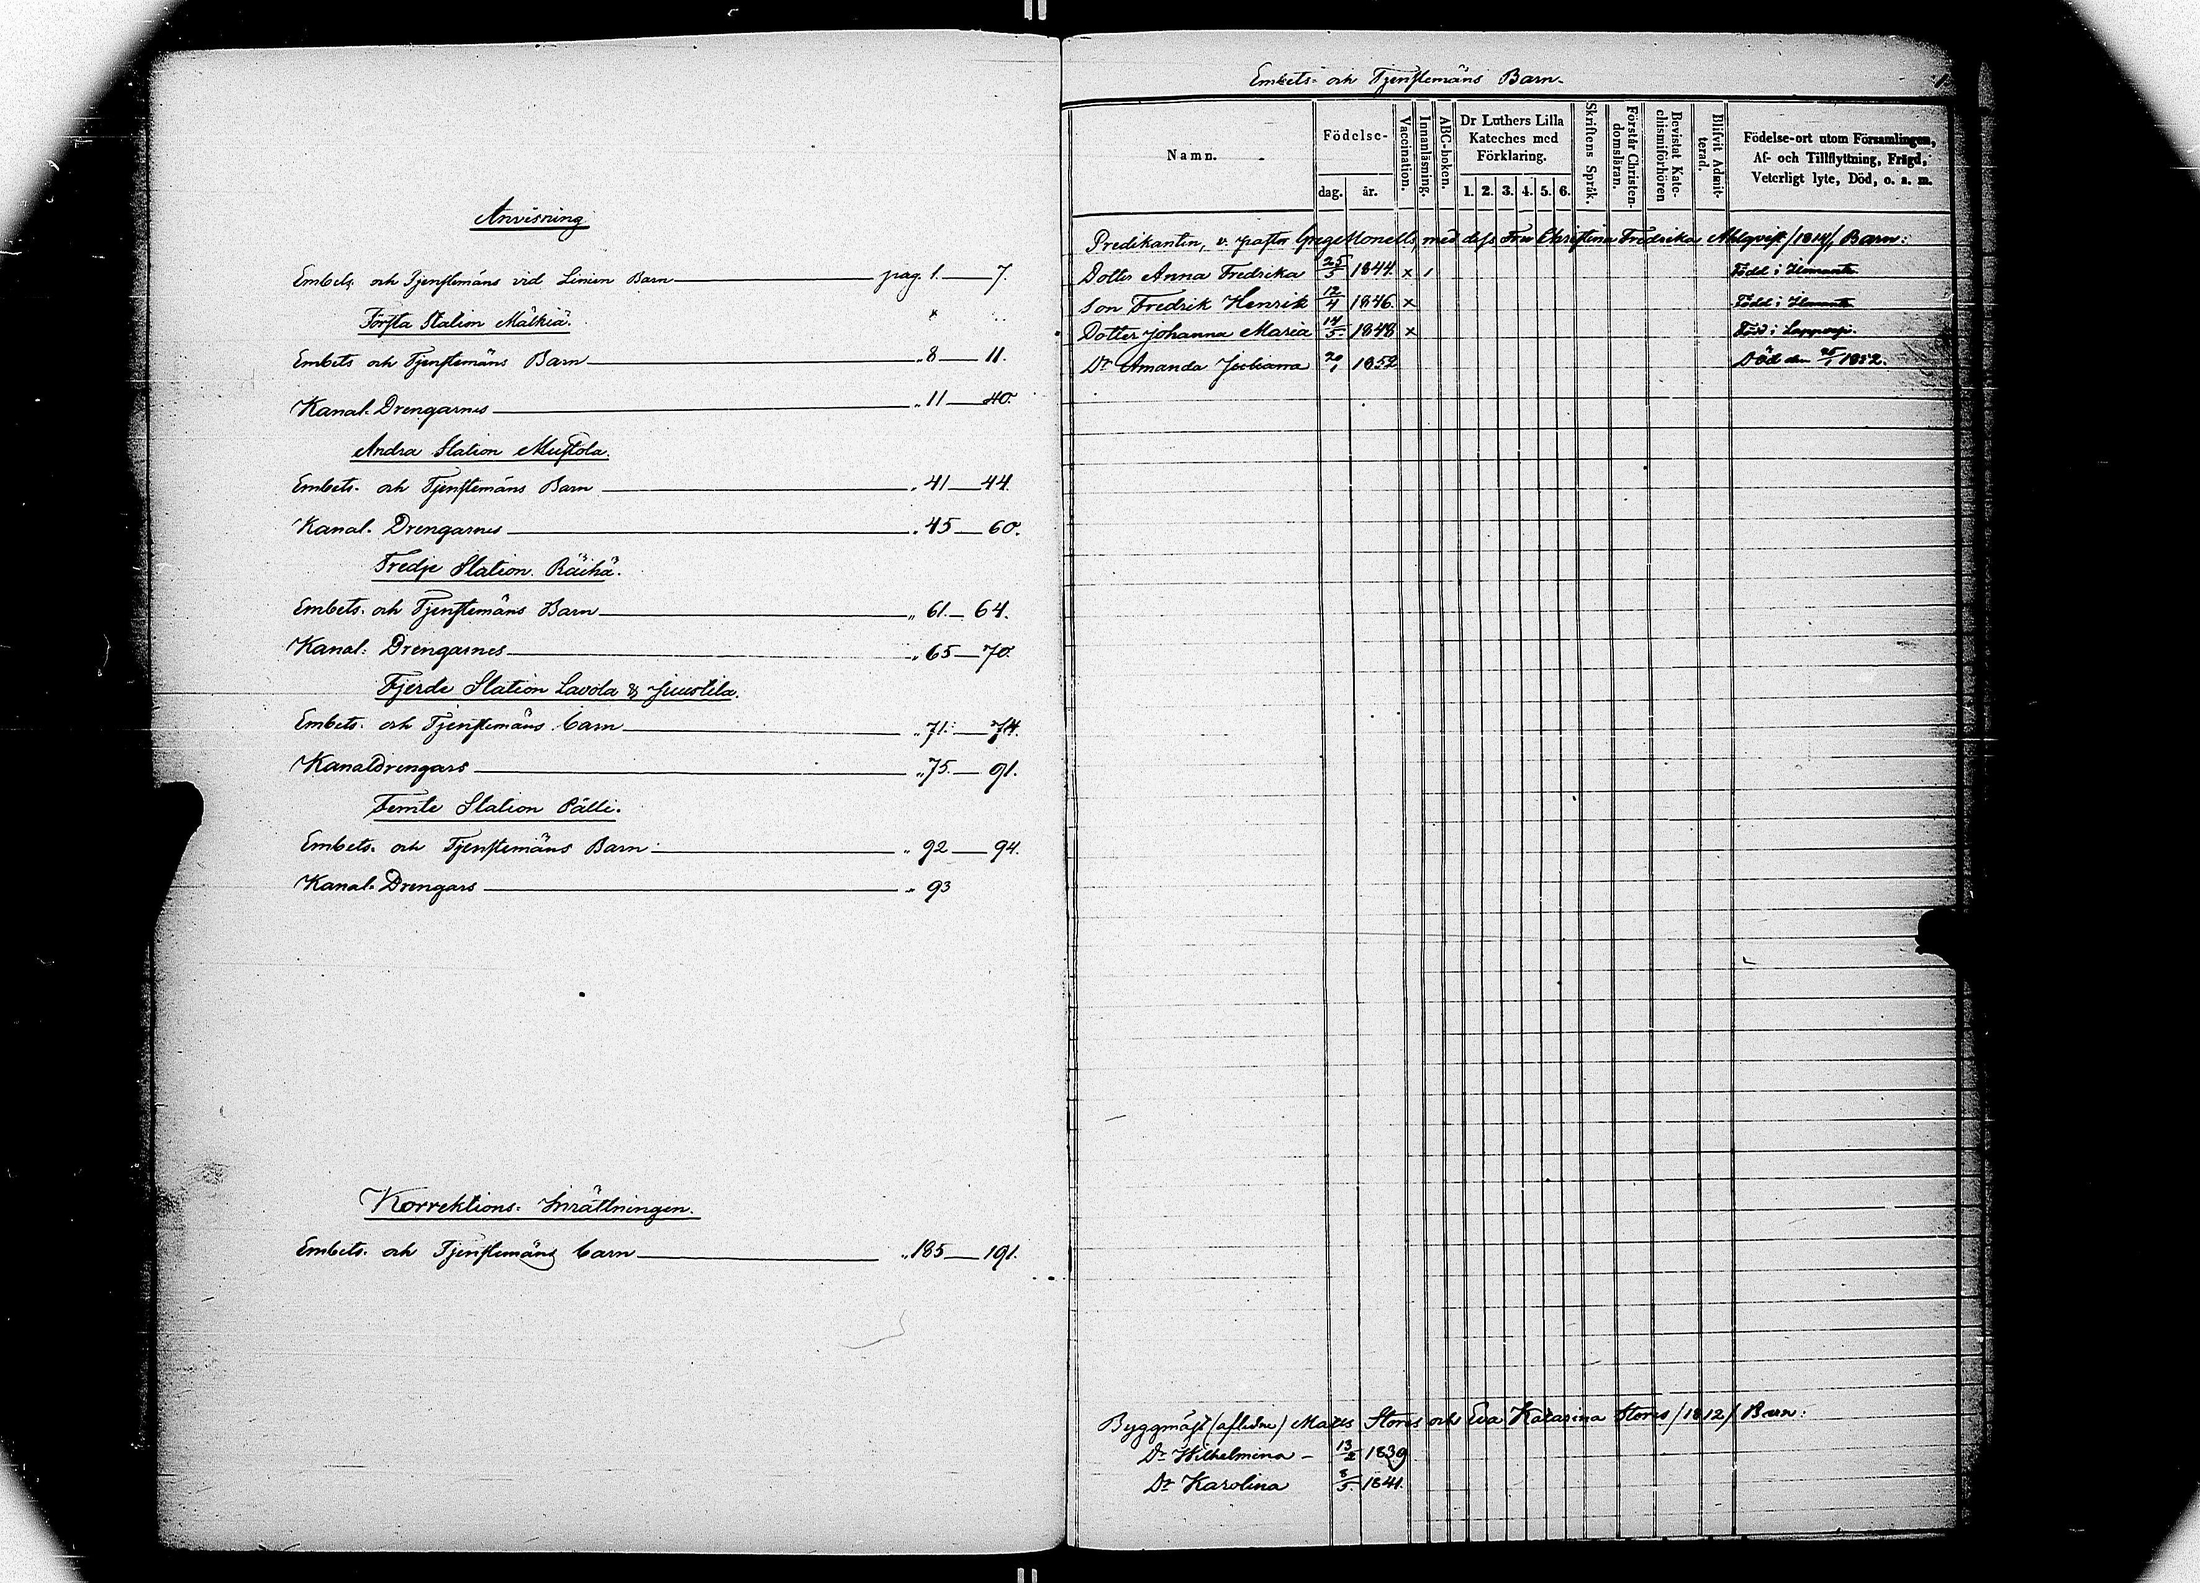 Anvisning
Embets och Tjenstemäns vid Linien Barn pag. 1. 7.
Första Station Mälkiä.
Embets och Tjenstemäns Barn „ 8 11.
Kanal-Drengarnes „ 11 40.
Andra Station Mustola.
Embets- och Tjenstemäns Barn „ 41 44.
Kanal-Drengarnes „ 45 60.
Tredje Station Räihä.
Embets- och Tjenstemäns Barn „ 61 64.
Kanal-Drengarnes „ 65 70.
Fjerde Station Lavola & Juustila.
Embets- och Tjenstemäns barn „ 71 74.
Kanaldrengars „ 75 91.
Femte Station Pälli.
Embets- och Tjenstemäns Barn „ 92 94.
Kanal-Drengars „ 93
Korrektions-Inrättningen.
Embets- och Tjenstemäns barn „ 185 191.
Embets- och Tjenstemäns Barn. 1
Namn.
Födelse-
dag. år.
Vaccination.
Innanläsning.
ABC-boken.
Dr Luthers Lilla
Kateches med
Förklaring.
1. 2. 3. 4. 5. 6.
Skriftens Språk.
Förstår Christen-
domsläran.
Bevistat Kate-
chismiförhören
Blifvit Admit-
terad.
Födelse-ort utom Församlingen,
Af- och Tillflyttning, Frägd,
Veterligt lyte, Död, o. s. m.
Predikanten, v. pastor Monells, med dess Fru Christina Fredrika Ahlqvist /1814/, Barn:
Dotter Anna Fredrika 25/5 1844. x 1 Född i
Son Fredrik Henrik 12/4 1846. x Född i
Dotter Johanna Maria 14/5 1848 x Född i
Dr Amanda Juliana 20/1 1852 Död den 1852.
Byggmäst (aflidne) Matts Stores och Eva Katarina Stores /1812/ Barn:
Dr Wilhelmina - 13/2 1839
Dr Karolina 8/5 1841.